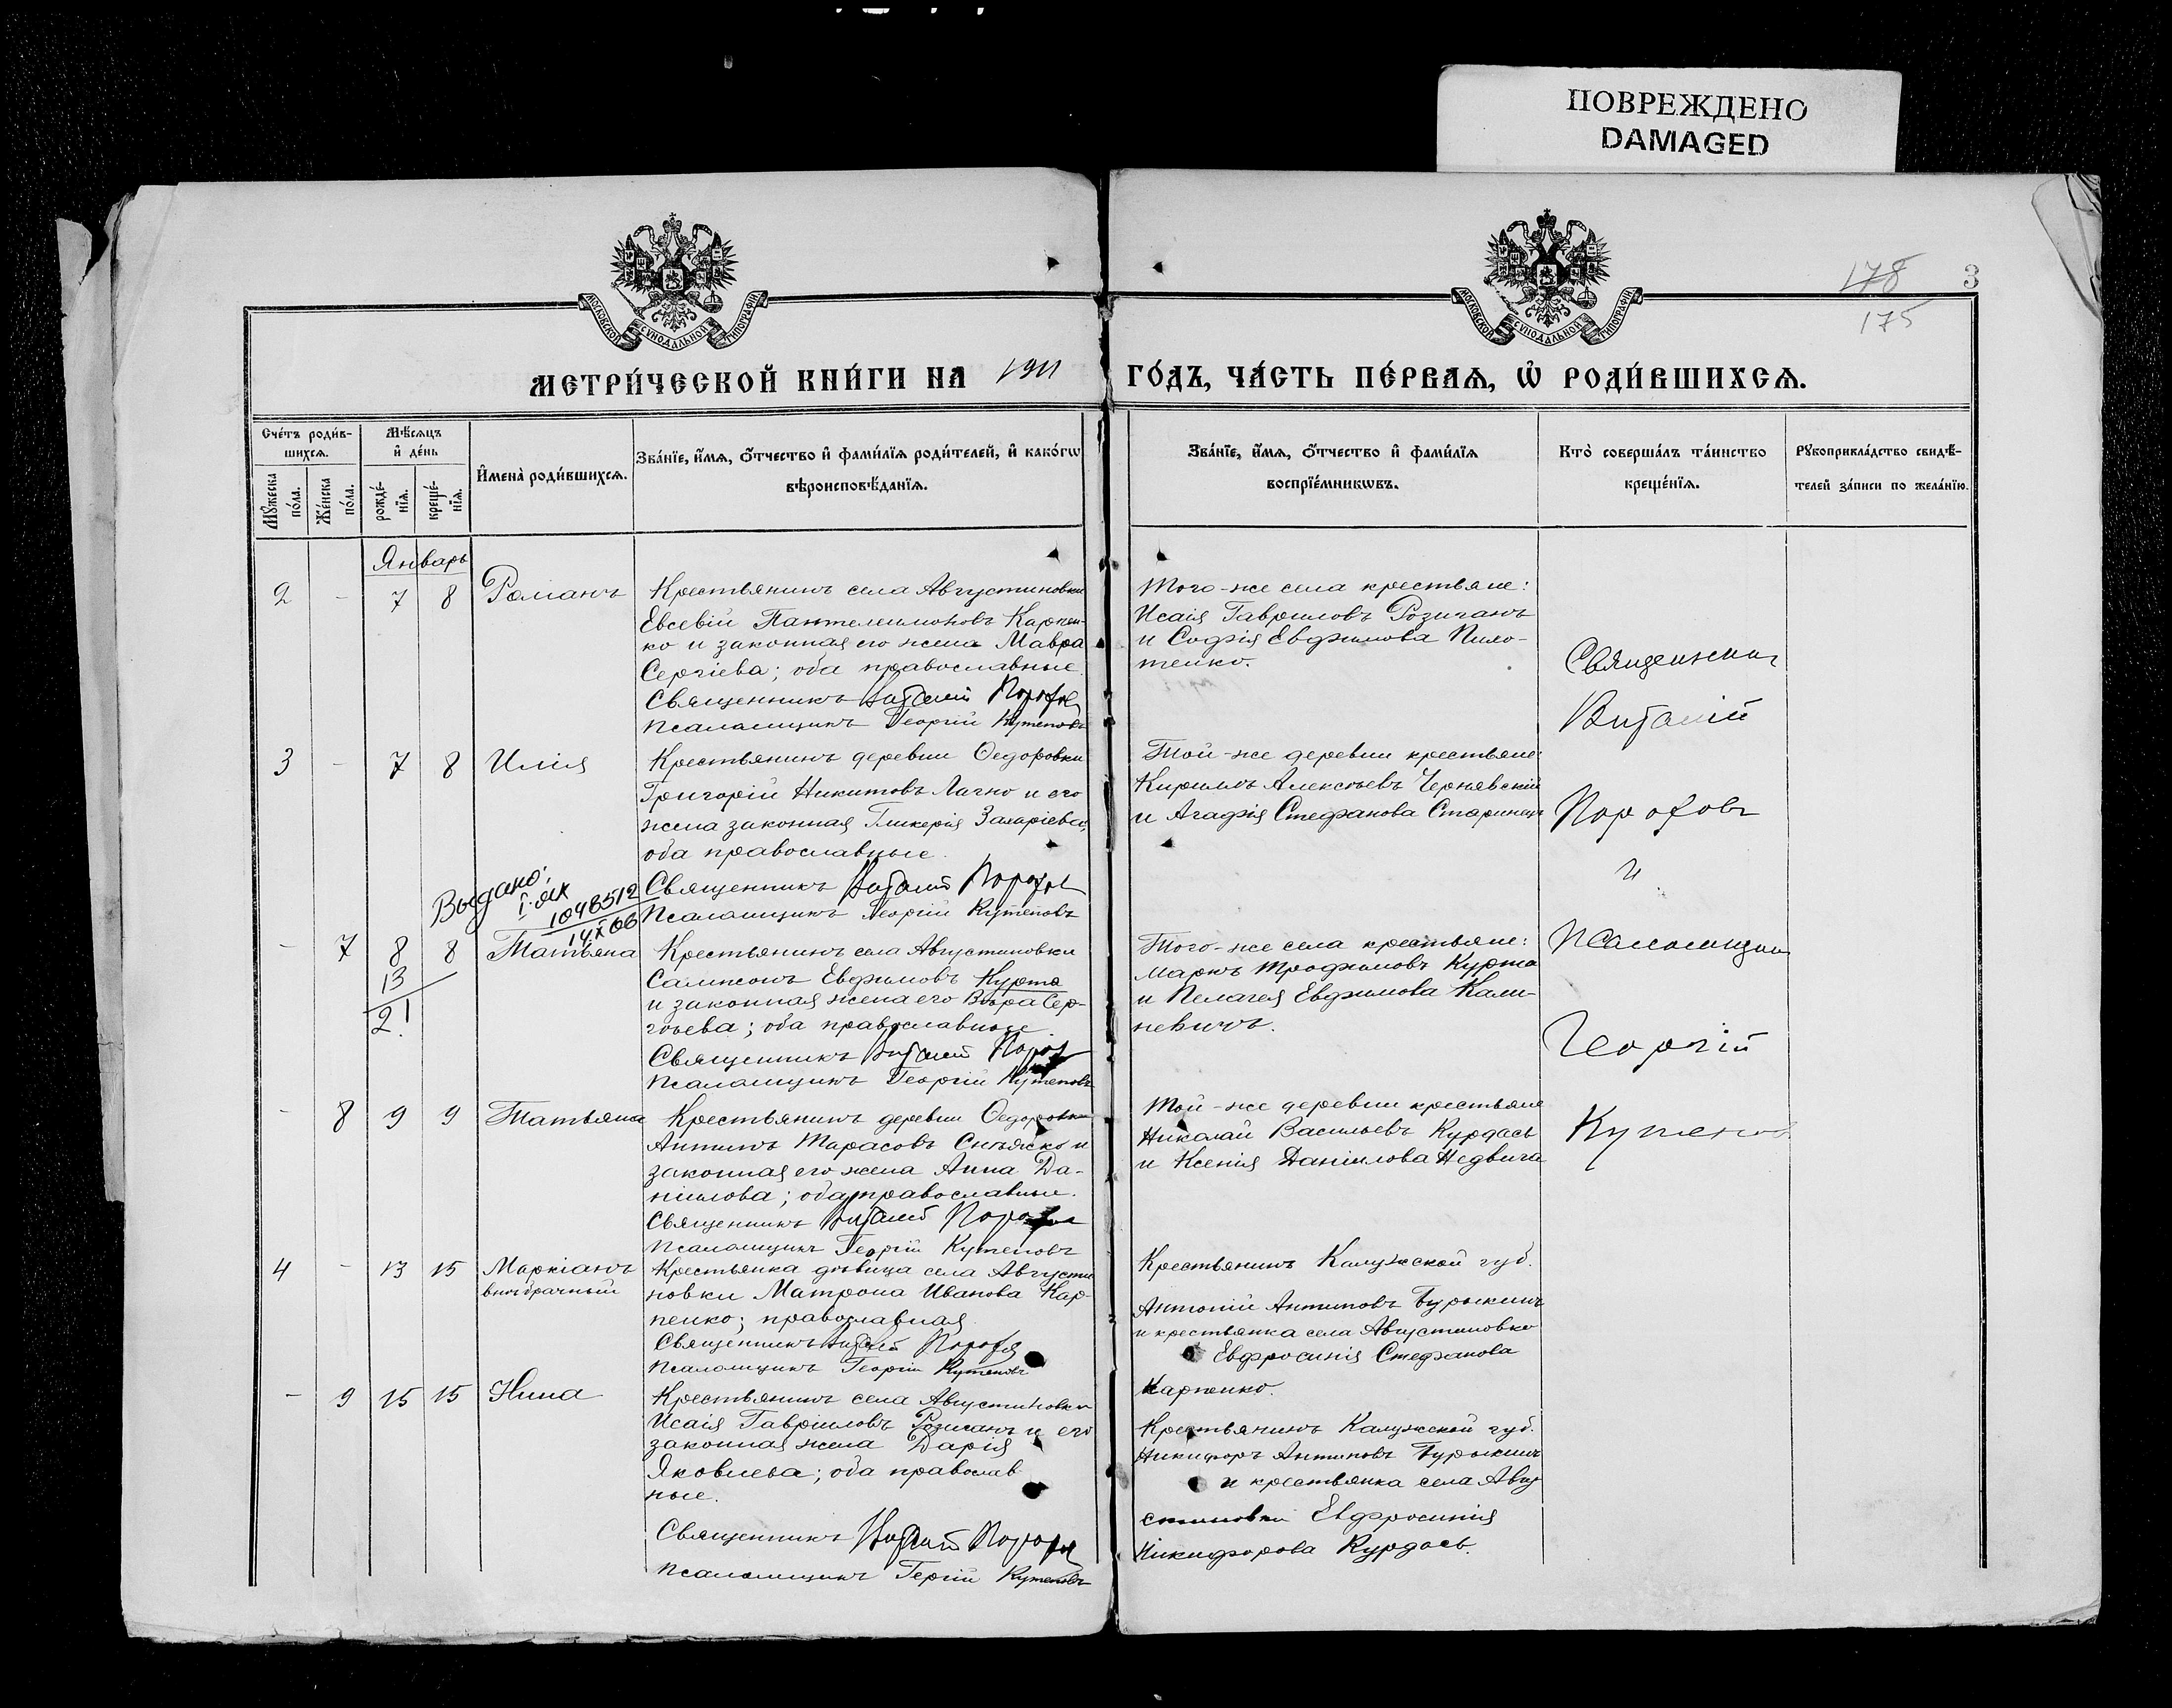 ПОВРЕЖДЕНО
DAMAGED
МОСКОВСКОЙ СѴНОДАЛЬНОЙ ТИПОГРАФІИ
МОСКОВСКОЙ СѴНОДАЛЬНОЙ ТИПОГРАФІИ
178 3
175
МЕТРИ́ЧЕСКОЙ КНИ́ГИ НА 1911 ГО́ДЪ, ЧА́СТЬ ПЕ́РВАѦ, Ѽ РОДИ́ВШИХСѦ.
Сче́тъ роди́в-
шихсѧ.
Мꙋ́жеска по́ла.
Же́нска по́ла.
Мѣ́сѧцъ
и҆ де́нь
рожде́-
нїѧ.
креще́-
нїѧ.
И҆мена̀ роди́вшихсѧ.
Зва́нїе, и҆́мѧ, ѻ҆́тчество и҆ фами́лїѧ роди́телей, и҆ како́гѡ
вѣроисповѣ́данїѧ.
Зва́нїе, и҆́мѧ, ѻ҆́тчество и҆ фами́лїѧ
воспрїе́мникѡвъ.
Кто̀ соверша́лъ та́инство
креще́нїѧ.
Рꙋкоприкла́дство свидѣ́-
телей за́писи по жела́нїю.
Январь
2 - 7 8 Романъ
Крестьянинъ села Августиновки
Евсевій Пантелеимоновъ Карпен-
ко и законная его жена Мавра
Сергіева; оба православные
Священникъ Виталій Порохов
Псаломщикъ Георгій Кутеповъ
Того-же села крестьяне:
Исаія Гавриловъ Розиганъ
и Софія Евфимова Пило-
тенко.
3 - 7 8 Илія
Крестьянинъ деревни Ѳедоровки
Григорій Никитовъ Лагно и его
жена законная Гликерія Захаріева;
оба православные.
Священникъ Виталій Порохов
Псаломщикъ Георгій Кутеповъ
Той-же деревни крестьяне:
Кириллъ Алексѣевъ Чернявскій
и Агафія Стефанова Старинецъ
Выдано:
1048512
- 7 8 8 Татьяна
13
21
Крестьянинъ села Августиновки
Сампсонъ Евфимовъ Курта
и законная жена его Вѣра Сер-
гѣева; оба православные
Священникъ Виталій Порохов
Псаломщикъ Георгій Кутеповъ
Того-же села крестьяне:
Маркъ Трофимовъ Курта
и Пелагея Евфимова Кали-
невичъ.
- 8 9 9 Татьяна
Крестьянинъ деревни Ѳедоровки
Антипъ Тарасовъ и
законная его жена Анна Да-
ніилова; оба православные.
Священникъ Виталій Порохов
Псаломщикъ Георгій Кутеповъ
Той-же деревни крестьяне
Николай Васильевъ Курдась
и Ксенія Даніилова Недвига
4 - 13 15 Маркіанъ
внѣбрачный
Крестьянка дѣвица села Августи
новки Матрона Иванова Кар-
пенко; православная
Священникъ Виталій Порохов
Псаломщикъ Георгій Кутеповъ
Крестьянинъ Калужской губ.
Антоній Антиповъ Бурыкинъ
и крестьянка села Августиновки
Евфросинія Стефанова
Карпенко.
- 9 15 15 Нина
Крестьянинъ села Августиновки
Исаія Гавріиловъ Розиганъ и его
законная жена Дарія
Яковлева; оба православ
ные.
Священникъ Виталій Порохов
Псаломщикъ Гергій Кутеповъ
Крестьянинъ Калужской губ.
Никифоръ Антиповъ Бурыкинъ
и крестьянка села Авгу
стиновки Евфросинія
Никифорова Курдась.
Священникъ
Виталій
Пороховъ
и
Псаломщик
Георгій
Кутепов